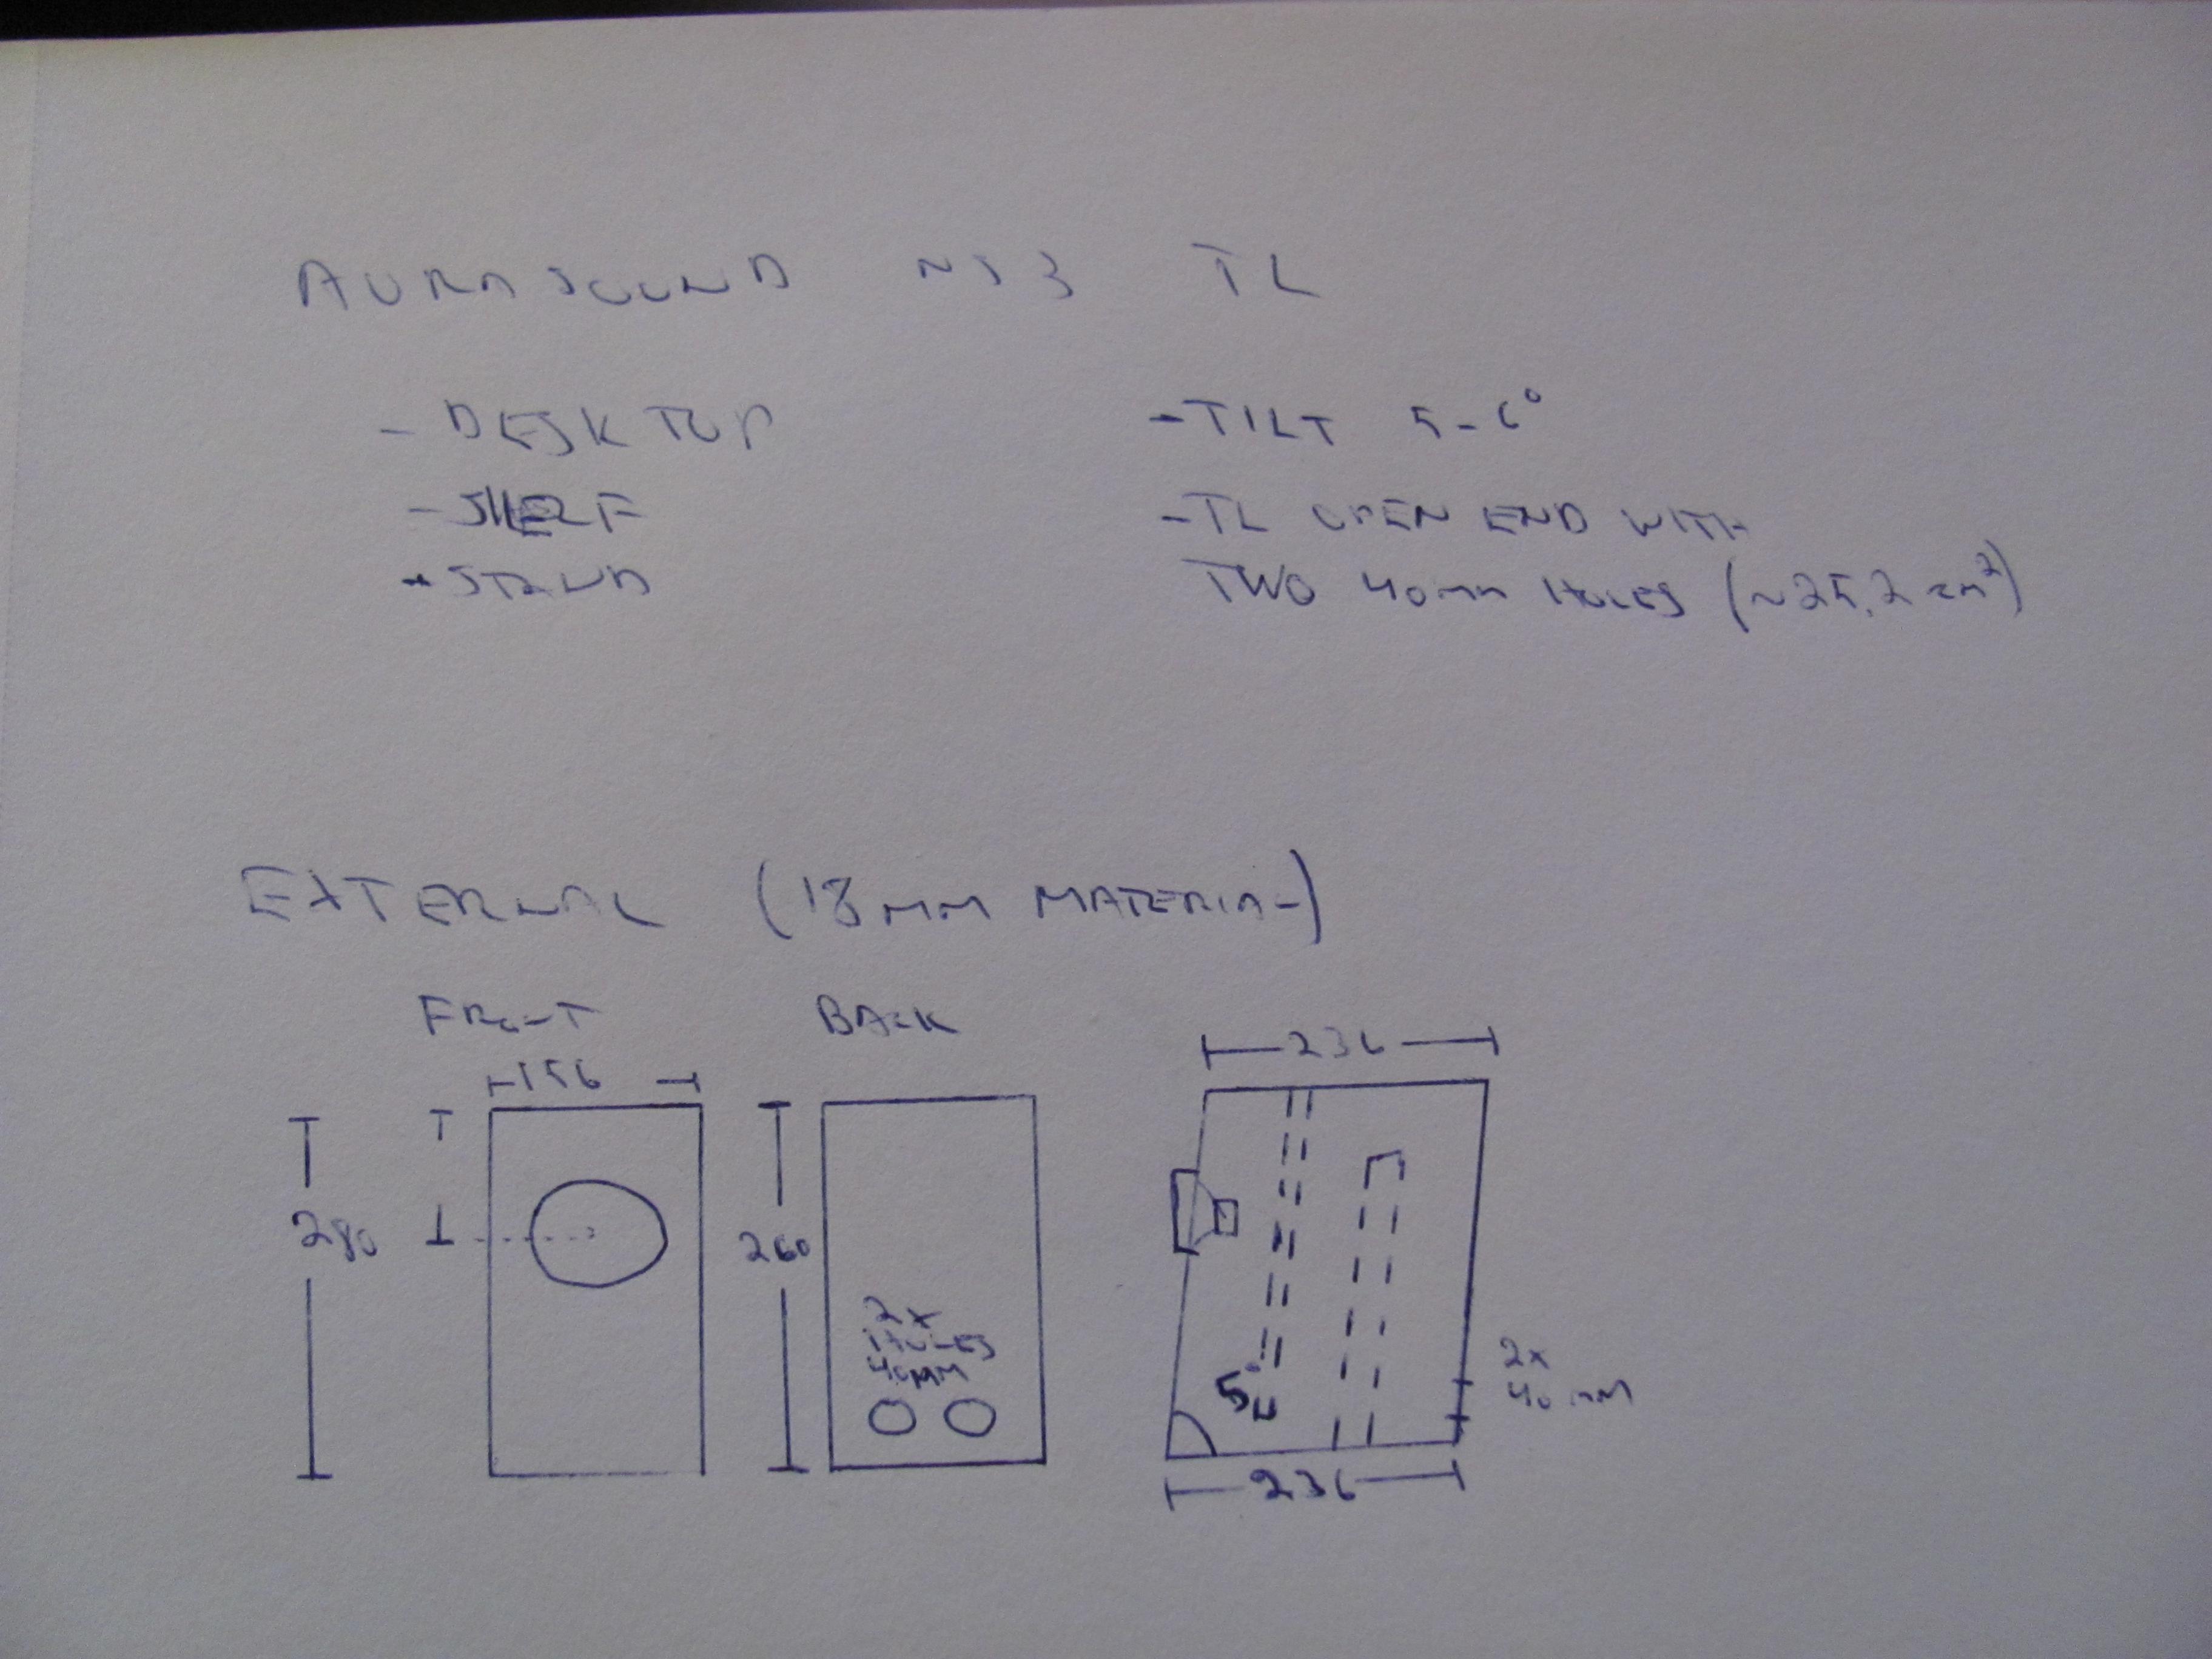 AURASOUND NS3 TL
- DESKTOP
- SHELF
- STAND
- TILT 5-6°
- TL OPEN END WITH
TWO 40mm HOLES (~25,2 cm²)
EXTERNAL (18MM MATERIAL)
FRONT
BACK
236
156
280
260
2x
HOLES
40MM
5°
2x
40mm
236